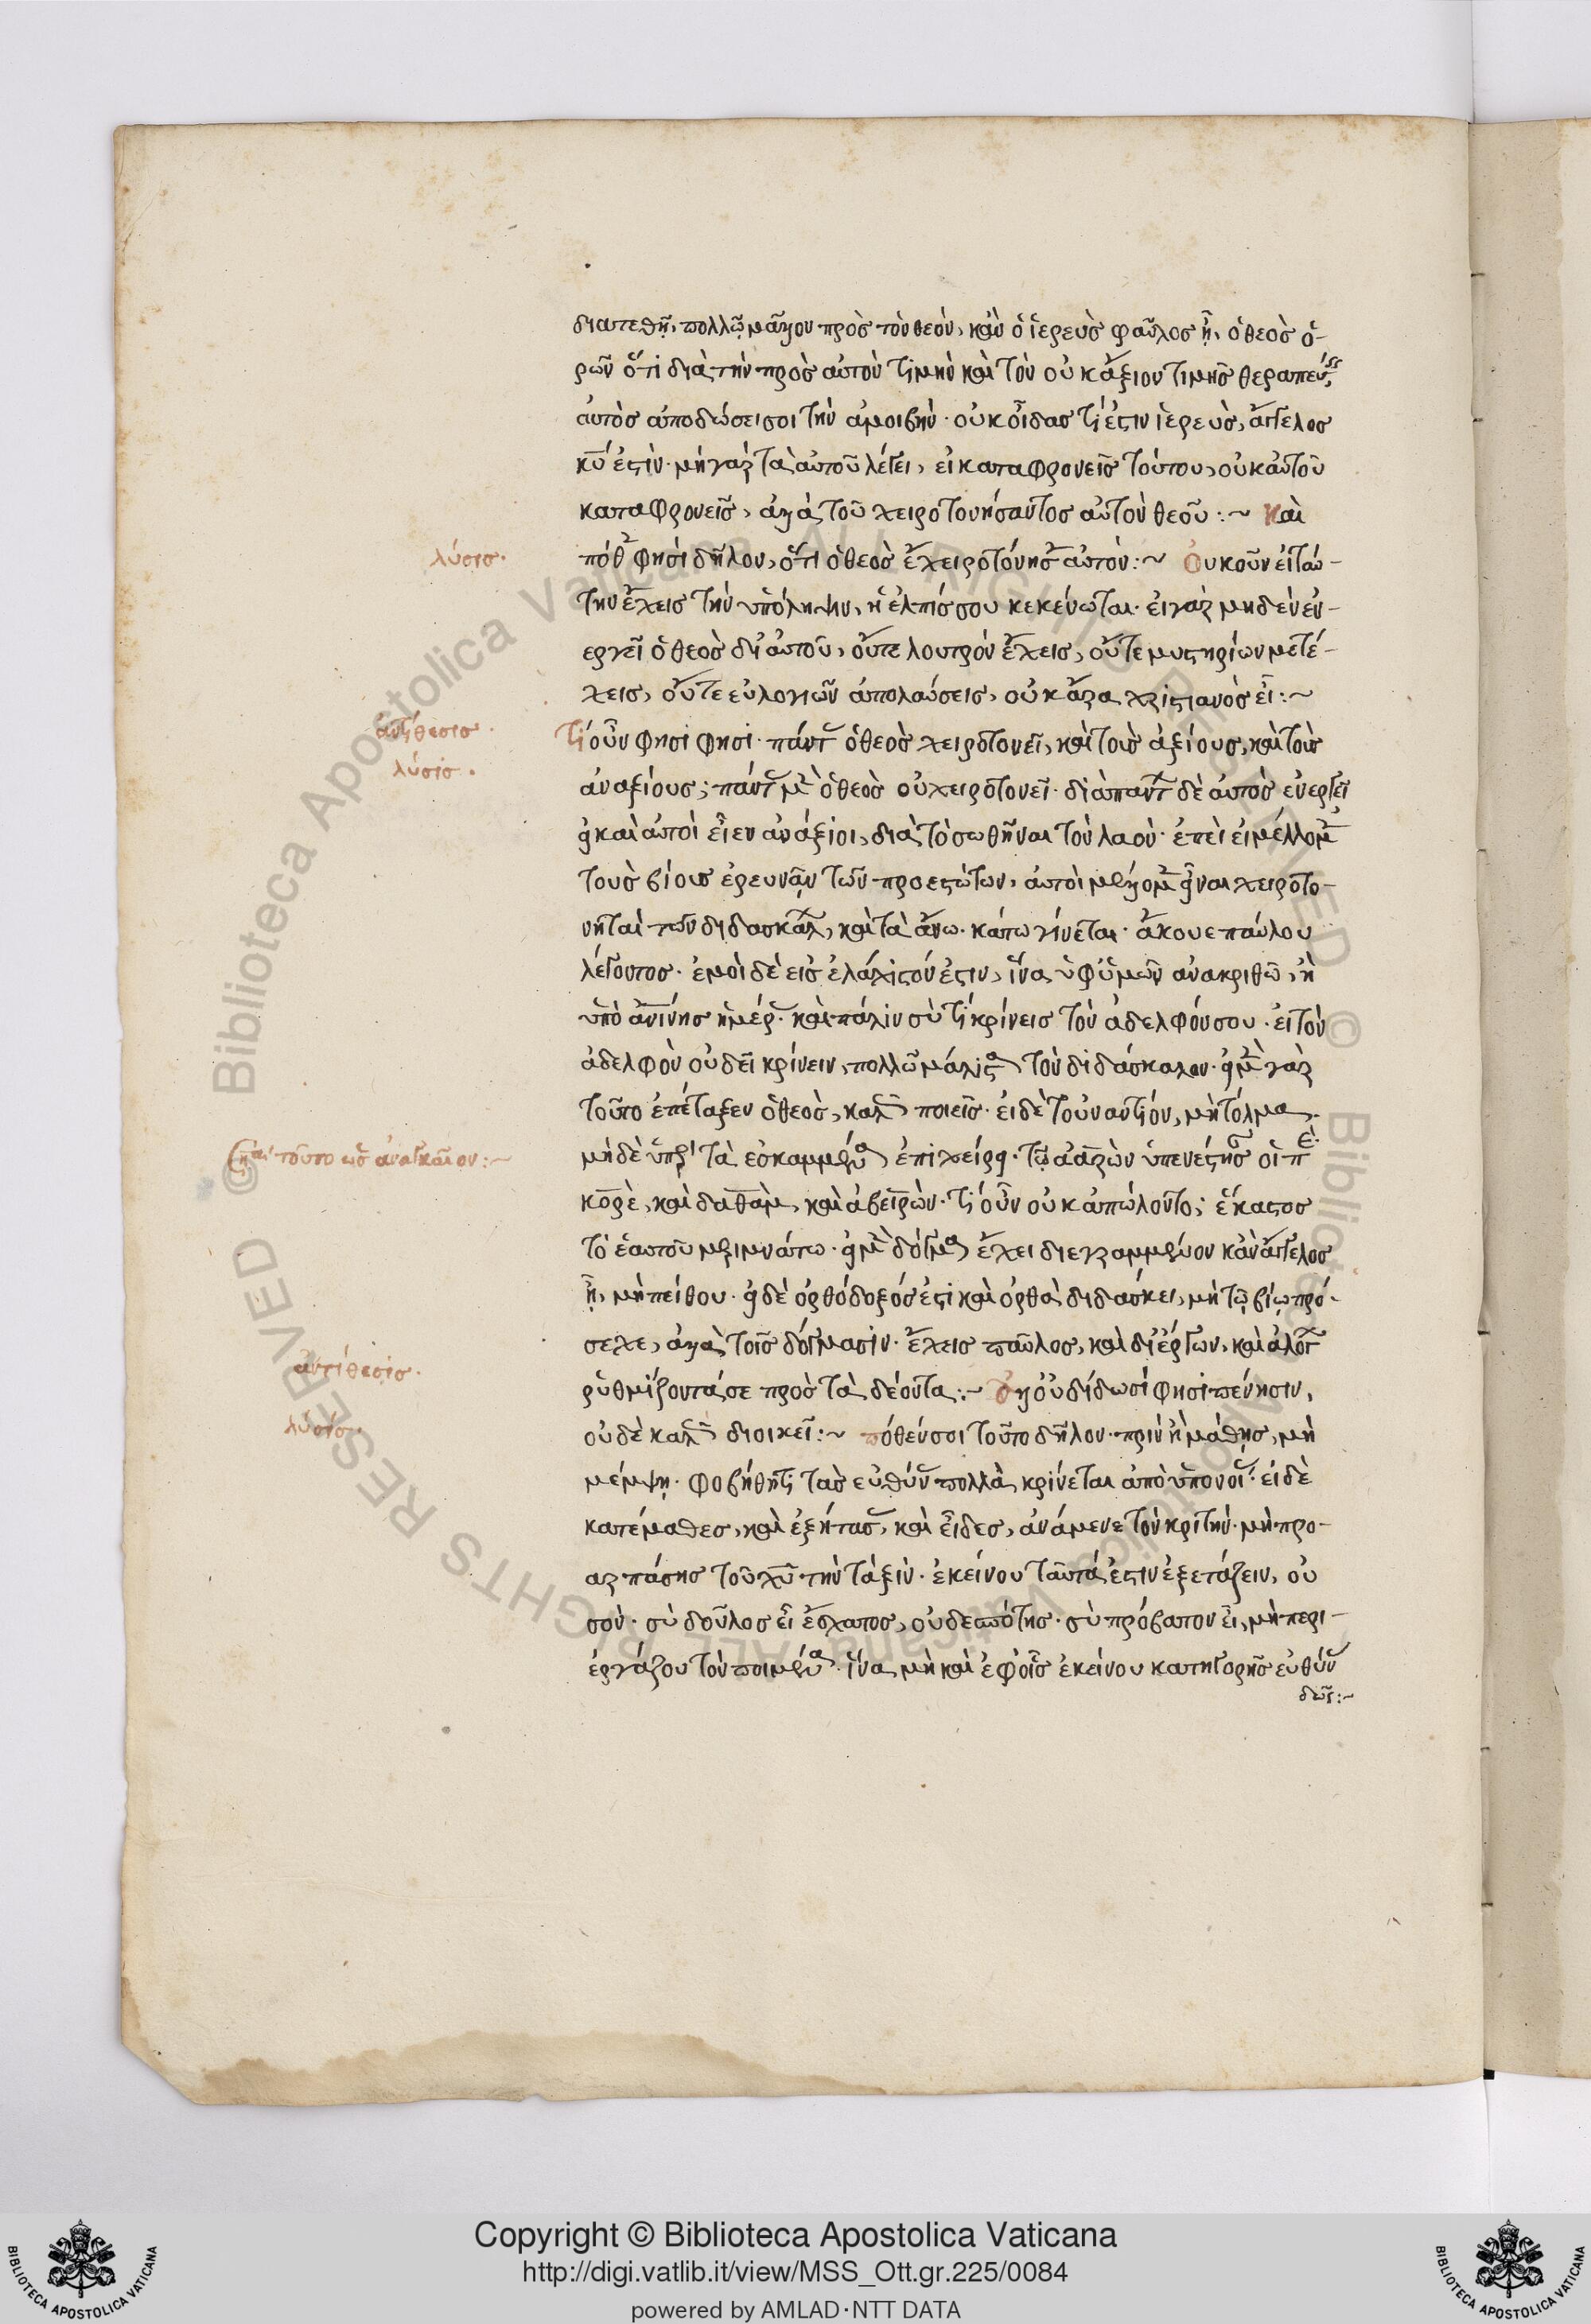 διατεθῇ, πολλῷ μᾶλλον πρὸς τὸν θεόν, κἂν ὁ ἱερεὺς φαῦλος ᾖ, ὁ θεὸς ὁ-
ρῶν ὅτι διὰ τὴν πρὸς αὐτὸν τιμὴν καὶ τὸν οὐκ ἄξιον τιμῆς θεραπεύεις,
αὐτὸς ἀποδώσει σοι τὴν ἀμοιβήν· οὐκ οἶδας τί ἐστιν ἱερεύς, ἄγγελος
κῡ ἐστίν· μὴ γὰρ τὰ αὐτοῦ λέγει, εἰ καταφρονεῖς τούτου, οὐκ αὐτοῦ
καταφρονεῖς, ἀλλὰ τοῦ χειροτονήσαντος αὐτὸν θεοῦ :~ Καὶ
λύσις·
πόθεν φησὶ δῆλον, ὅτι ὁ θεὸς ἐχειροτόνησεν αὐτόν :~ Οὐκοῦν εἰ ταύ-
την ἔχεις τὴν ὑπόληψιν, ἡ ἐλπίς σου κεκένωται· εἰ γὰρ μηδὲν ἐν-
εργεῖ ὁ θεὸς δι' αὐτοῦ, οὔτε λουτρὸν ἔχεις, οὔτε μυστηρίων μετέ-
χεις, οὔτε εὐλογιῶν ἀπολαύσεις, οὐκ ἄρα χριστιανὸς εἶ :~
ἀντίθεσις·
Τί οὖν φησι φησί· πάντας ὁ θεὸς χειροτονεῖ, καὶ τοὺς ἀξίους, καὶ τοὺς
λύσις·
ἀναξίους; πάντας μὲν ὁ θεὸς οὐ χειροτονεῖ· διὰ πάντων δὲ αὐτὸς ἐνεργεῖ
εἰ καὶ αὐτοὶ εἶεν ἀνάξιοι, διὰ τὸ σωθῆναι τὸν λαόν· ἐπεὶ εἰ μέλλομεν
τοὺς βίους ἐρευνᾷν τῶν προεστώτων, αὐτοὶ μέλλομεν εἶναι χειροτο-
νηταὶ τῶν διδασκάλων, καὶ τὰ ἄνω· κάτω γίνεται· ἄκουε παύλου
λέγοντος· ἐμοὶ δὲ εἰς ἐλάχιστόν ἐστιν, ἵνα ὑφ' ὑμῶν ἀνακριθῶ, ἢ
ὑπὸ ἀνίνης ἡμέρας· καὶ πάλιν σὺ τί κρίνεις τὸν ἀδελφόν σου· εἰ τὸν
ἀδελφὸν οὐ δεῖ κρίνειν, πολλῷ μάλιστα τὸν διδάσκαλον· εἰ μὲν γὰρ
τοῦτο ἐπέταξεν ὁ θεός, καλῶς ποιεῖς· εἰ δὲ τοὐναντίον, μὴ τόλμα,
σημείωσαι τοῦτο ὡς ἀναγκαῖον :~
μηδὲ ὑπὲρ τὰ ἐσκαμμένα ἐπιχείρει· τῷ ἀαρὼν ὑπενέστησαν οἱ περὶ
κορέ, καὶ δαθάμ, καὶ ἀβειρών· τί οὖν οὐκ ἀπώλοντο; ἕκαστος
τὸ ἑαυτοῦ μεριμνάτω· εἰ μὲν δόγμα ἔχει διεγραμμένον κἂν ἄγγελος
ᾖ, μὴ πείθου· εἰ δὲ ὀρθόδοξός ἐστι καὶ ὀρθὰ διδάσκει, μὴ τῷ βίῳ πρό-
σεχε, ἀλλὰ τοῖς δόγμασιν· ἔχεις παῦλος, καὶ δι' ἔργων, καὶ λόγων
ἀντίθεσις·
ῥυθμίζοντά σε πρὸς τὰ δέοντα :~ Ἀλλ' οὐ δίδωσί φησι πένησιν,
λύσις·
οὐδὲ καλῶς διοικεῖ :~ πόθεν σοι τοῦτο δῆλον· πρὶν ἢ μάθῃς, μὴ
μέμψῃ· φοβήθητι τὰς εὐθύνας πολλὰ κρίνεται ἀπὸ ὑπονοίας· εἰ δὲ
κατέμαθες, καὶ ἐξήτασας, καὶ εἶδες, ἀνάμενε τὸν κριτήν· μὴ προ-
αρπάσῃς τοῦ χῡ τὴν τάξιν· ἐκείνου ταῦτά ἐστιν ἐξετάζειν, οὐ
σόν· σὺ δοῦλος εἶ ἔσχατος, οὐ δεσπότης· σὺ πρόβατον εἶ, μὴ περι-
εργάζου τὸν ποιμένα· ἵνα μὴ καὶ ἐφ' οἷς ἐκείνου κατηγορῇς εὐθύνας
δῷς :~
Copyright © Biblioteca Apostolica Vaticana
http://digi.vatlib.it/view/MSS_Ott.gr.225/0084
powered by AMLAD·NTT DATA